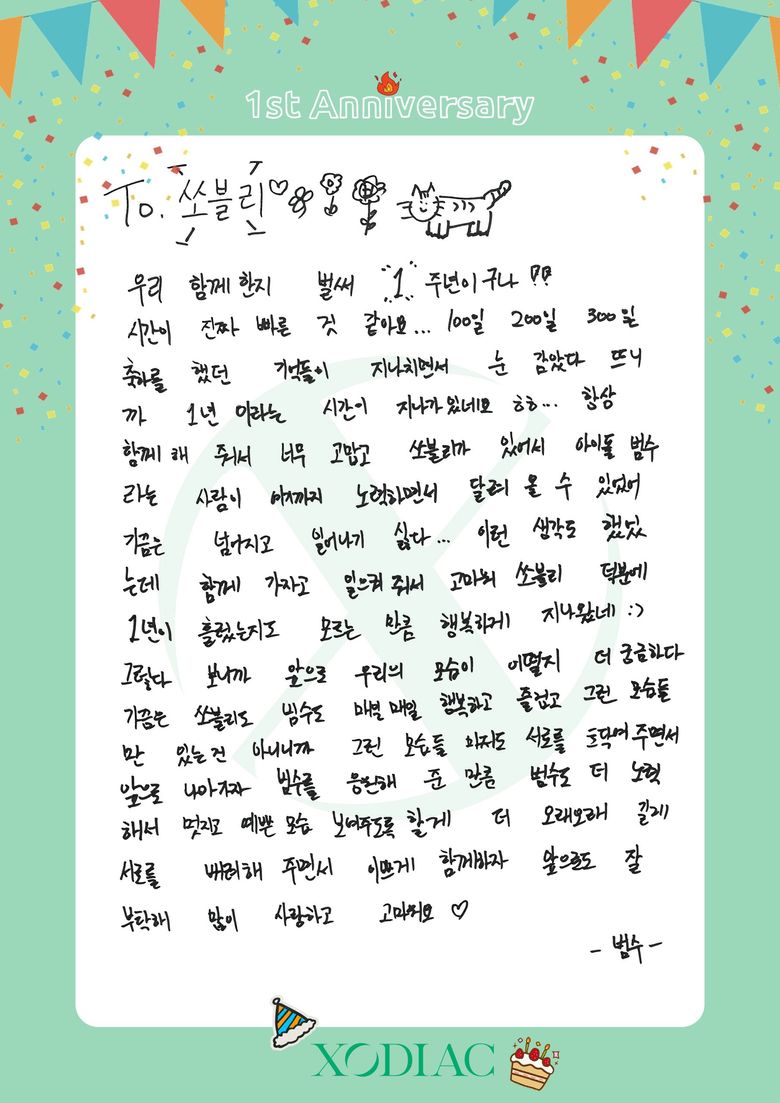 1st Anniversary
To. 쏘블리♡
우리 함께한지 벌써 1 주년이구나 !!
시간이 진짜 빠른 것 같아요... 100일 200일 300일
축하를 했던 기억들이 지나치면서 눈 감았다 뜨니
까 1년 이라는 시간이 지나가있네요 ㅎㅎ... 항상
함께 해 줘서 너무 고맙고 쏘블리가 있어서 아이돌 범수
라는 사람이 여기까지 노력하면서 달려 올 수 있었어
가끔은 넘어지고 일어나기 싫다... 이런 생각도 했었
는데 함께 가자고 일으켜 줘서 고마워 쏘블리 덕분에
1년이 흘렀는지도 모르는 만큼 행복하게 지나왔네 :)
그렇다 보니까 앞으로 우리의 모습이 어떨지 더 궁금하다
가끔은 쏘블리도 범수도 매번 매일 행복하고 즐겁고 그런 모습들
만 있는건 아니니까 그런 모습들 마저도 서로를 토닥여 주면서
앞으로 나아가자 범수를 응원해 준 만큼 범수도 더 노력
해서 멋지고 예쁜 모습 보여주도록 할게 더 오래오래 길게
서로를 배려해 주면서 이쁘게 함께하자 앞으로도 잘
부탁해 많이 사랑하고 고마워요 ♡
- 범수 -
XODIAC